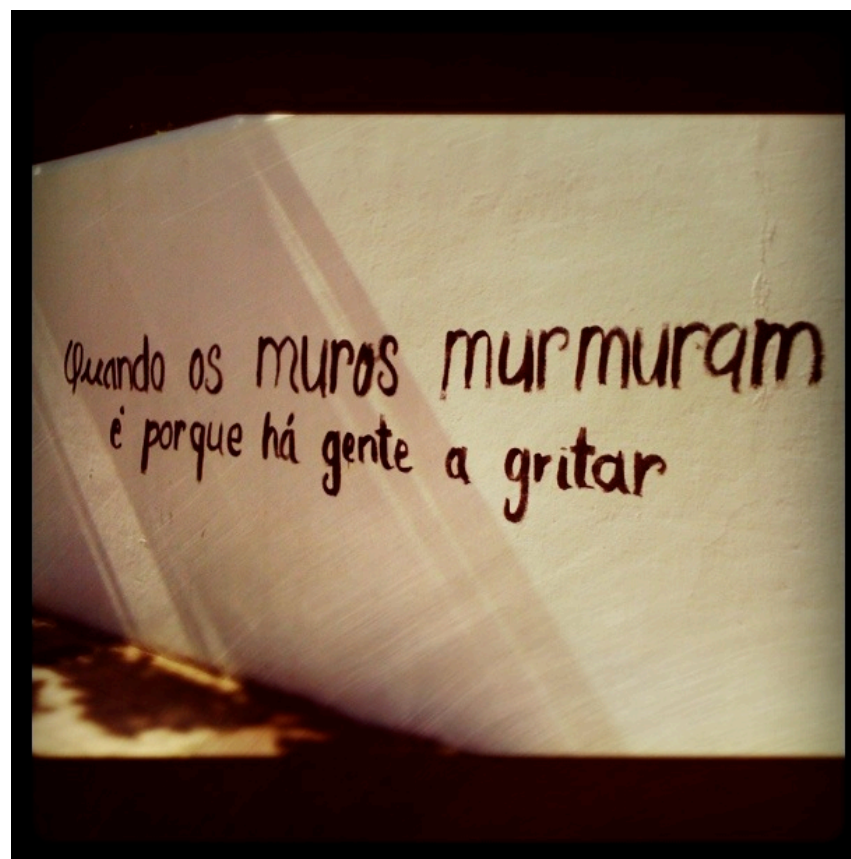 Quando os muros murmuram
é porque há gente a gritar